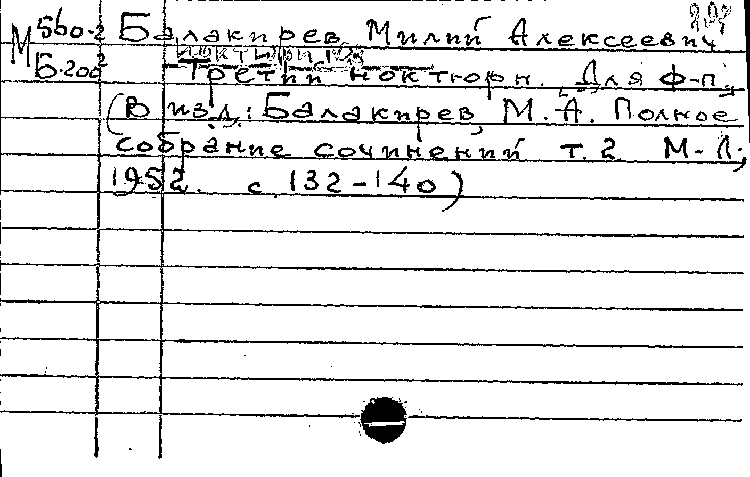 М 560-2 Балакирев Милий Алексеевич
Б-200²
Третий ноктюрн. Для ф-п.
(В изд.: Балакирев, М. А. Полное
собрание сочинений т. 2 М-Л;
1952. с. 132-140)